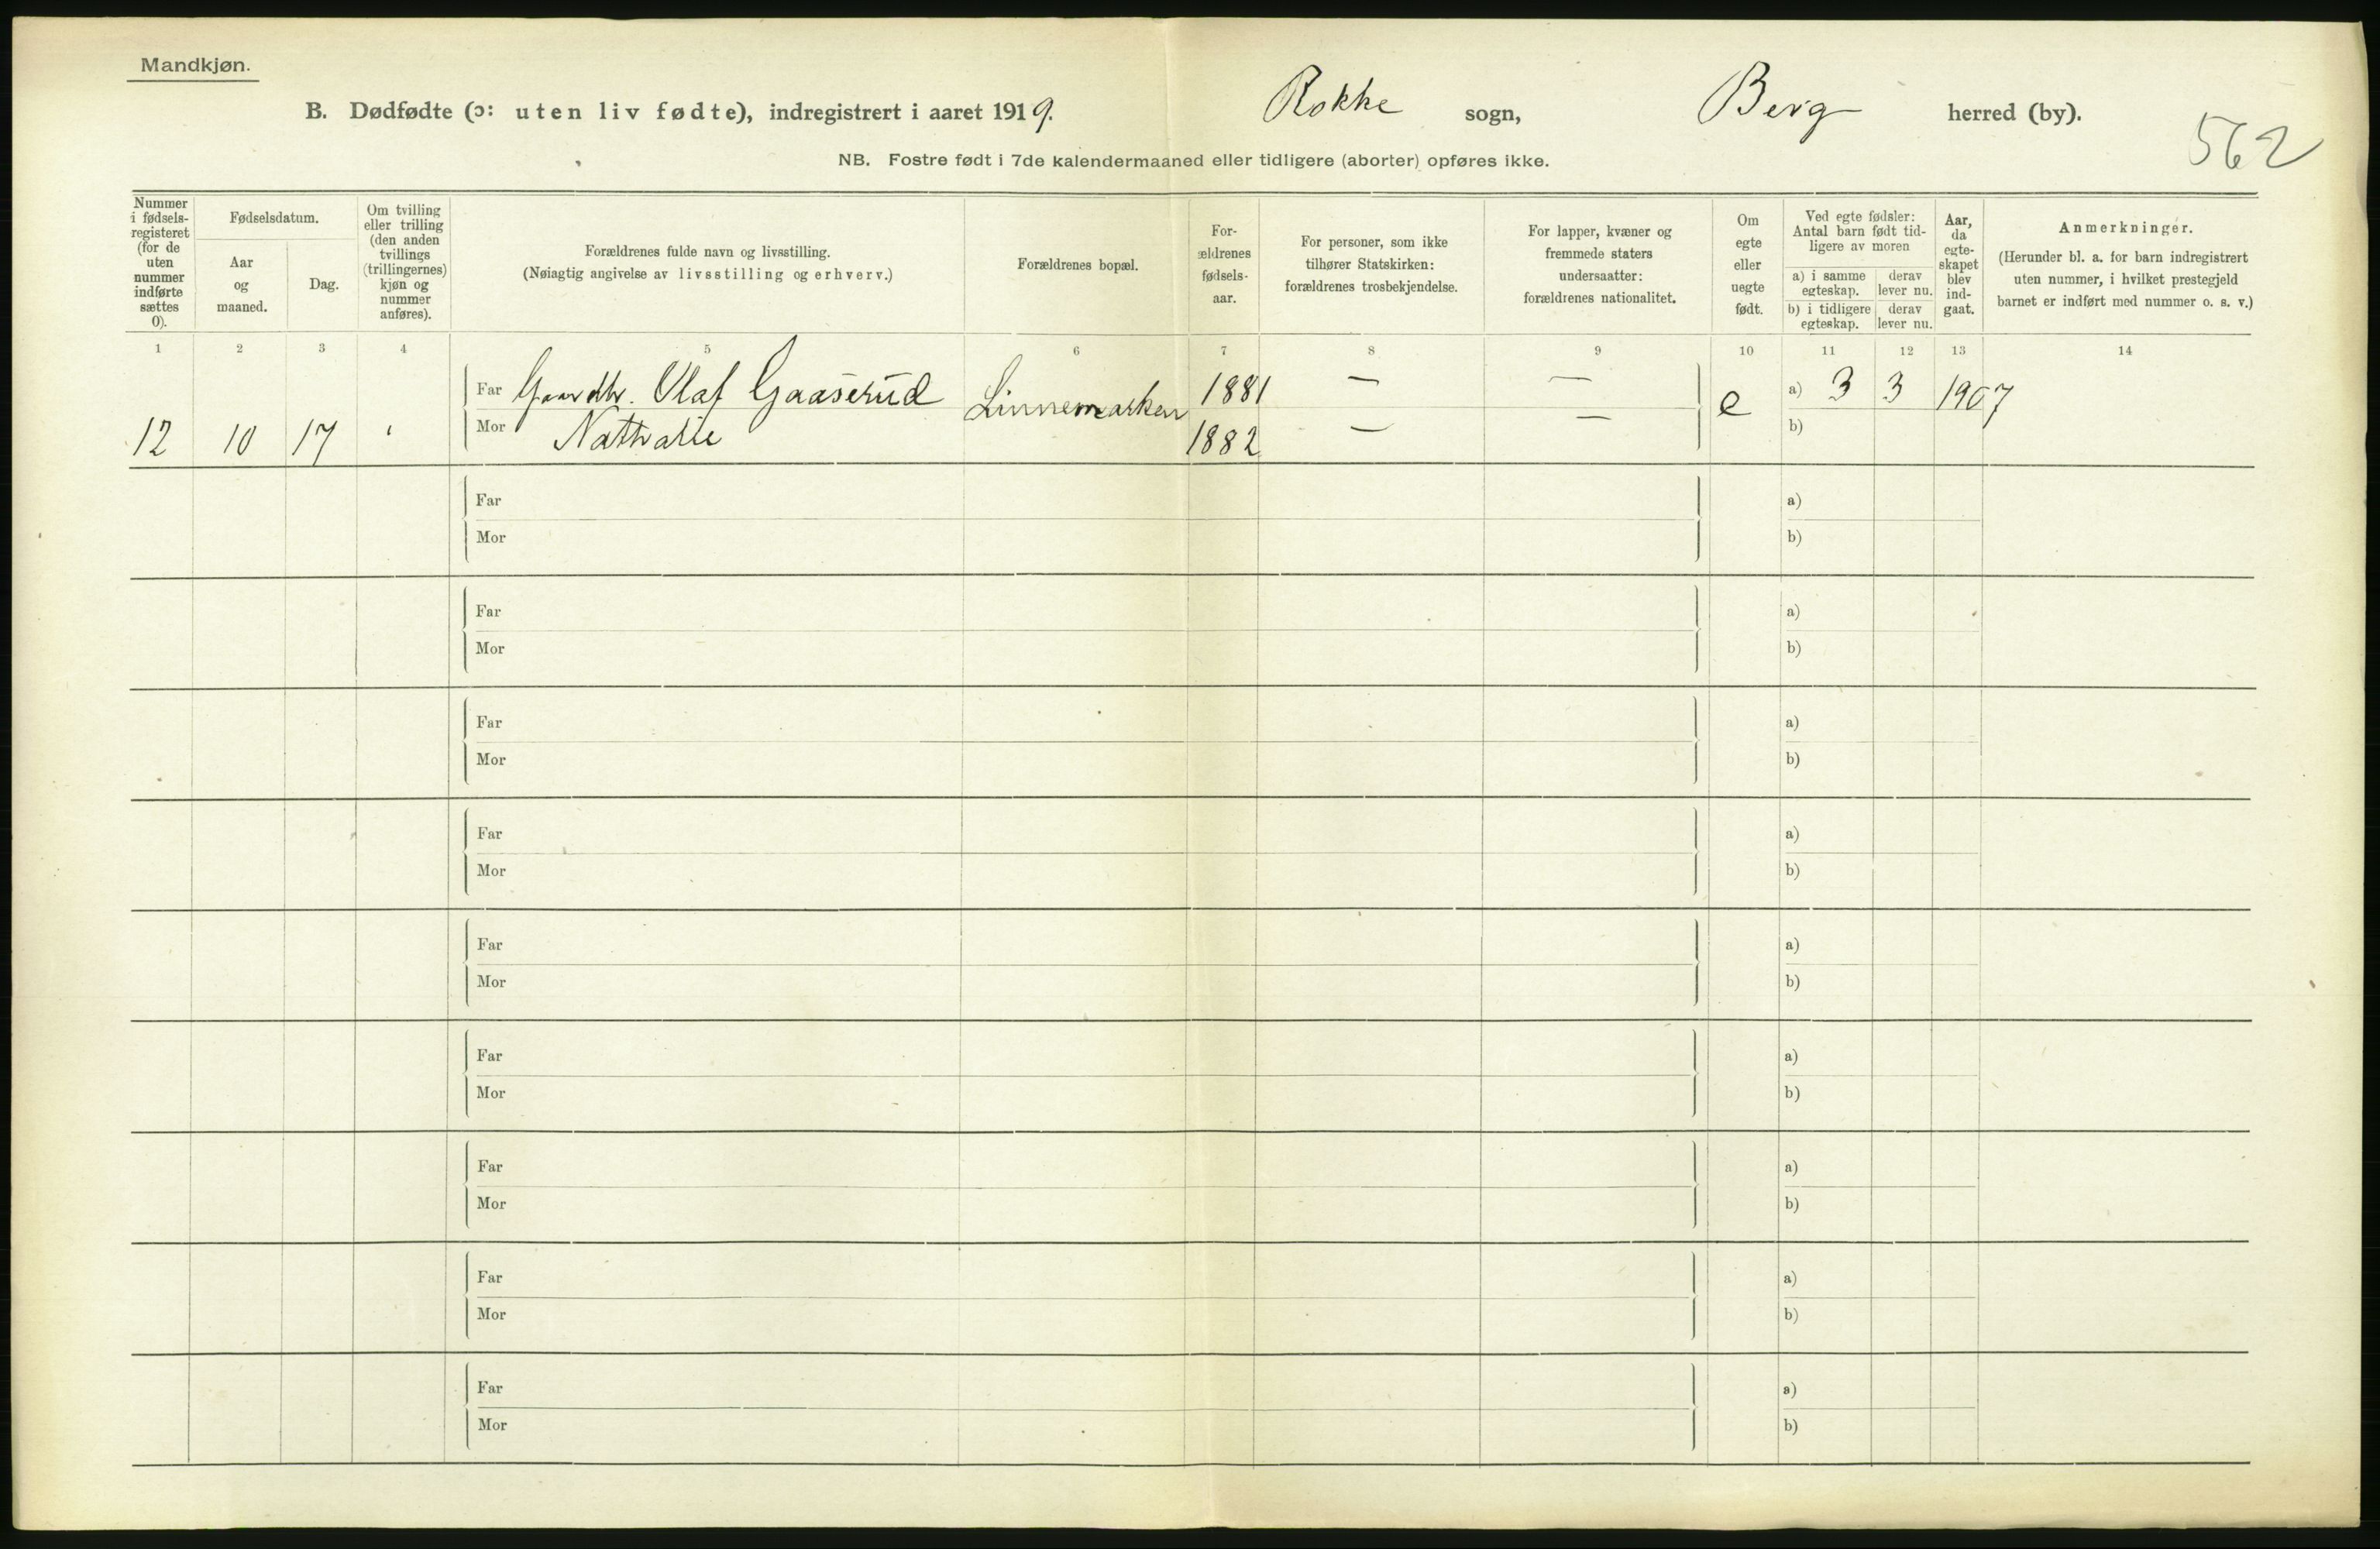 Mandkjøn.
B. Dødfødte (ɔ: uten liv fødte), indregistrert i aaret 1919. Rokke sogn, Berg herred (by).
562
NB. Fostre født i 7de kalendermaaned eller tidligere (aborter) opføres ikke.
Nummer i fødsels- registeret (for de uten nummer indførte sættes 0).
Fødselsdatum.
Aar og maaned.
Dag.
Om tvilling eller trilling (den anden tvillings (trillingernes) kjøn og nummer anføres).
Forældrenes fulde navn og livsstilling.
(Nøiagtig angivelse av livsstilling og erhverv.)
Forældrenes bopæl.
For- ældrenes fødsels- aar.
For personer, som ikke tilhører Statskirken: forældrenes trosbekjendelse.
For lapper, kvæner og fremmede staters undersaatter: forældrenes nationalitet.
Om egte eller uegte født.
Ved egte fødsler: Antal barn født tid- ligere av moren
a) i samme egteskap. derav lever nu.
b) i tidligere egteskap. derav lever nu.
Aar, da egte- skapet blev ind- gaat.
Anmerkninger.
(Herunder bl. a. for barn indregistrert uten nummer, i hvilket prestegjeld barnet er indført med nummer o. s. v.)
1 2 3 4 5 6 7 8 9 10 11 12 13 14
Far Gaardbr. Olaf Gaaserud Linnemarken 1881 — — e a) 3 3 1907
12 10 17 Mor Nathalie 1882 — — b)
Far a)
Mor b)
Far a)
Mor b)
Far a)
Mor b)
Far a)
Mor b)
Far a)
Mor b)
Far a)
Mor b)
Far a)
Mor b)
Far a)
Mor b)
Far a)
Mor b)